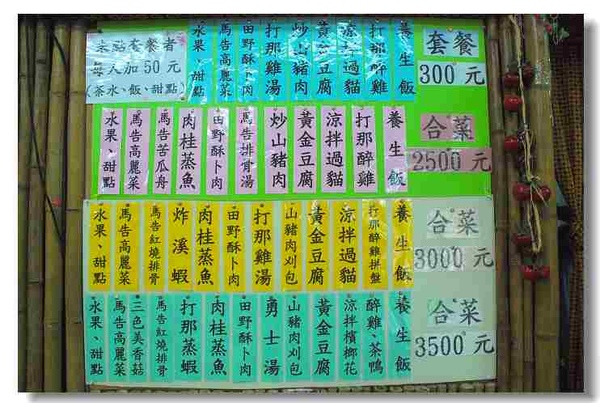 套餐
300元
養生飯
打那醉雞
涼拌過貓
黃金豆腐
炒山豬肉
打那雞湯
田野酥卜肉
馬告高麗菜
水果、甜點
未點套餐者
每人加50元
(茶水、飯、甜點)
合菜
2500元
養生飯
打那醉雞
涼拌過貓
黃金豆腐
炒山豬肉
馬告排骨湯
田野酥卜肉
肉桂蒸魚
馬告苦瓜舟
馬告高麗菜
水果、甜點
合菜
3000元
養生飯
打那醉雞拼盤
涼拌過貓
黃金豆腐
山豬肉刈包
打那雞湯
田野酥卜肉
肉桂蒸魚
炸溪蝦
馬告紅燒排骨
馬告高麗菜
水果、甜點
合菜
3500元
養生飯
醉雞、茶鴨
涼拌檳榔花
黃金豆腐
山豬肉刈包
勇士湯
田野酥卜肉
肉桂蒸魚
打那蒸蝦
馬告紅燒排骨
三色美香菇
馬告高麗菜
水果、甜點